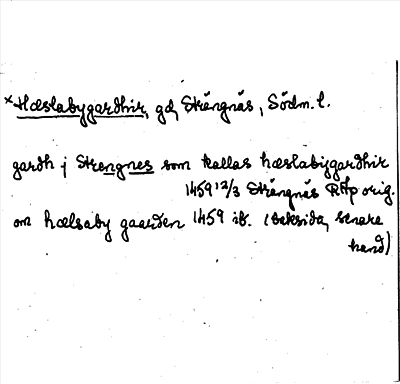 *Hæslabygardhrir, gd, Strängnäs, Södm. l.
gardh j Strengnes som kallas hæslabygardhrir
1459 12/3 Strängnäs RAp orig.
om hælsaby gaarden 1459 ib. (baksida, senare
hand)